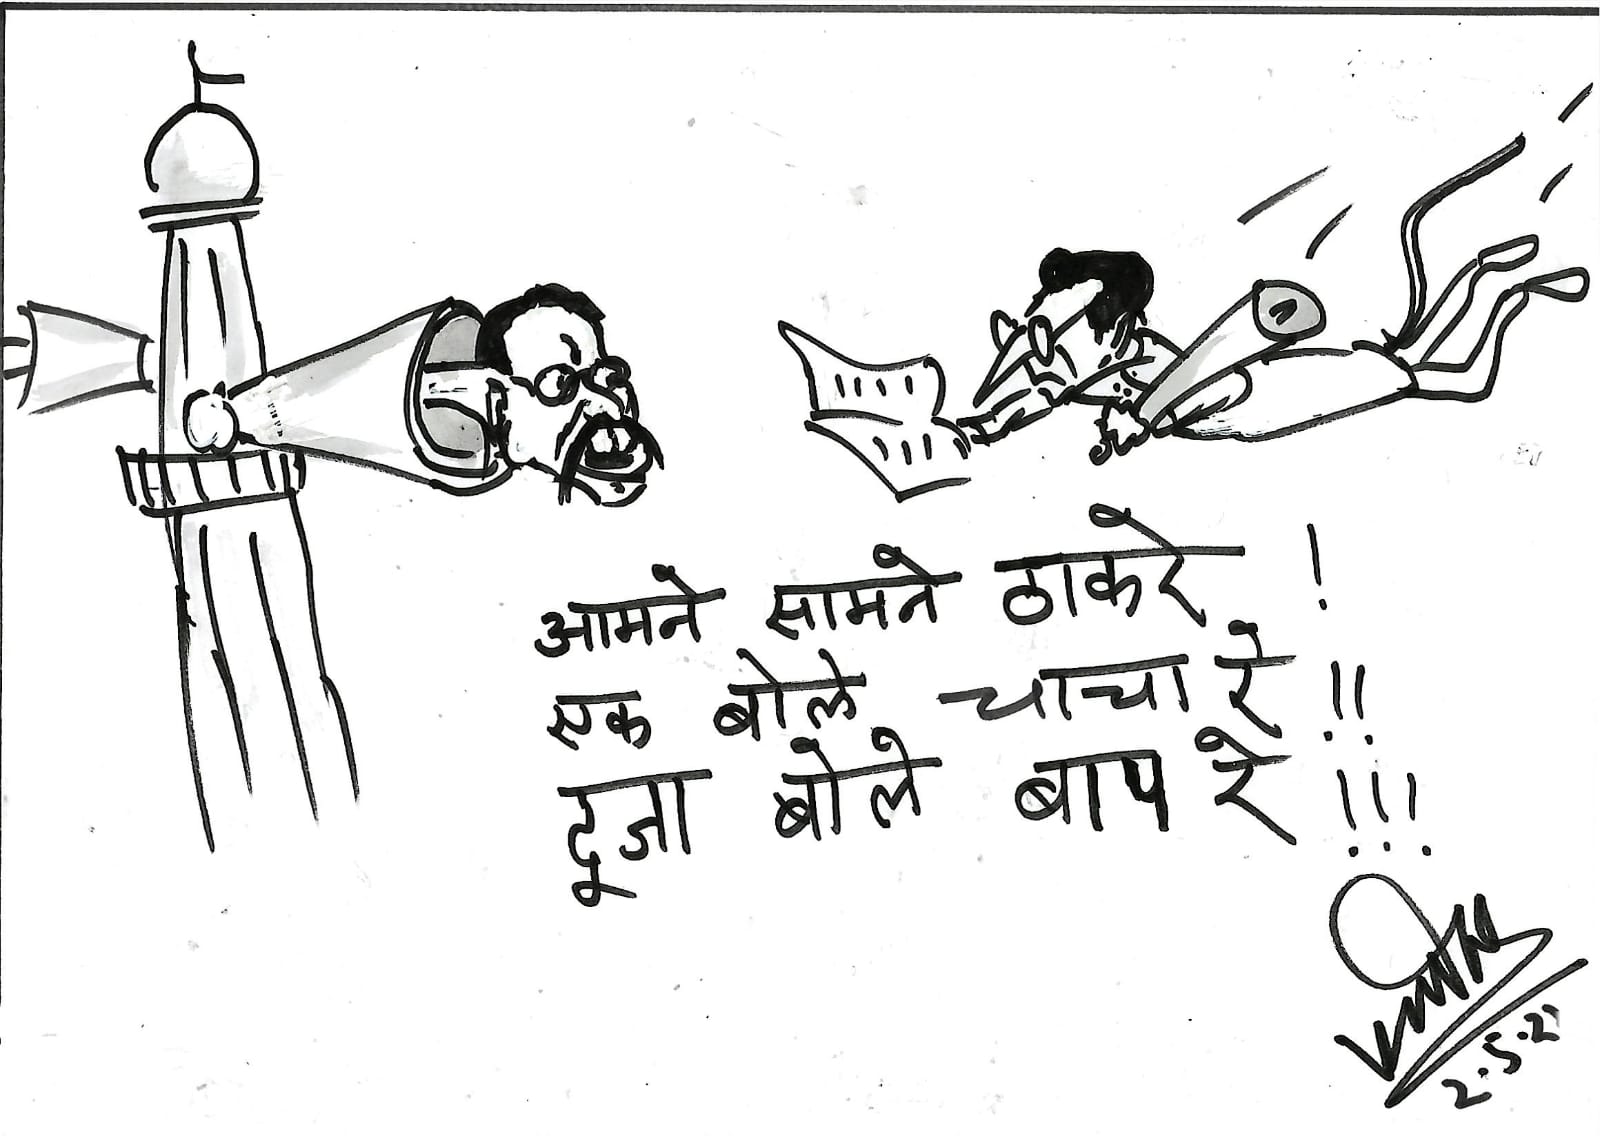 आमने सामने ठाकरे !
एक बोले चाचा रे !!
दूजा बोले बाप रे !!!
2.5.2